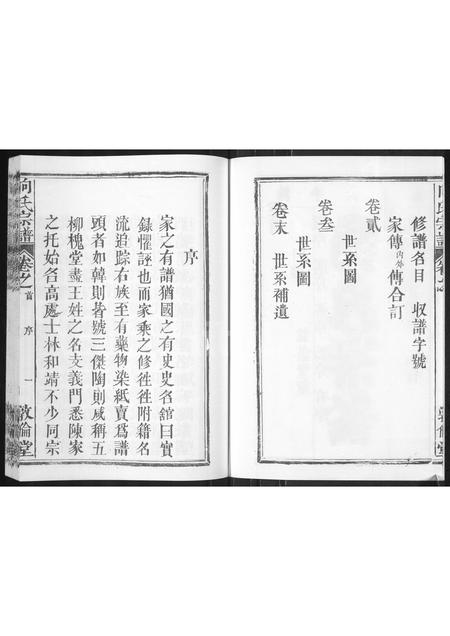 修譜名目 收譜字號
家傳內外傳合訂
卷貳
世系圖
卷叁
世系圖
卷末
世系補遺
序
家之有譜猶國之有史史名舘曰實
錄懼誣也而家乘之修徃徃附籍名
流追踪右族至有藥物染紙賣爲譜
頭者如韓則皆號三傑陶則咸稱五
柳槐堂盡王姓之名支義門悉陳家
之托始各高處士林和靖不少同宗
向氏宗譜 卷之首 序 一 敦倫堂